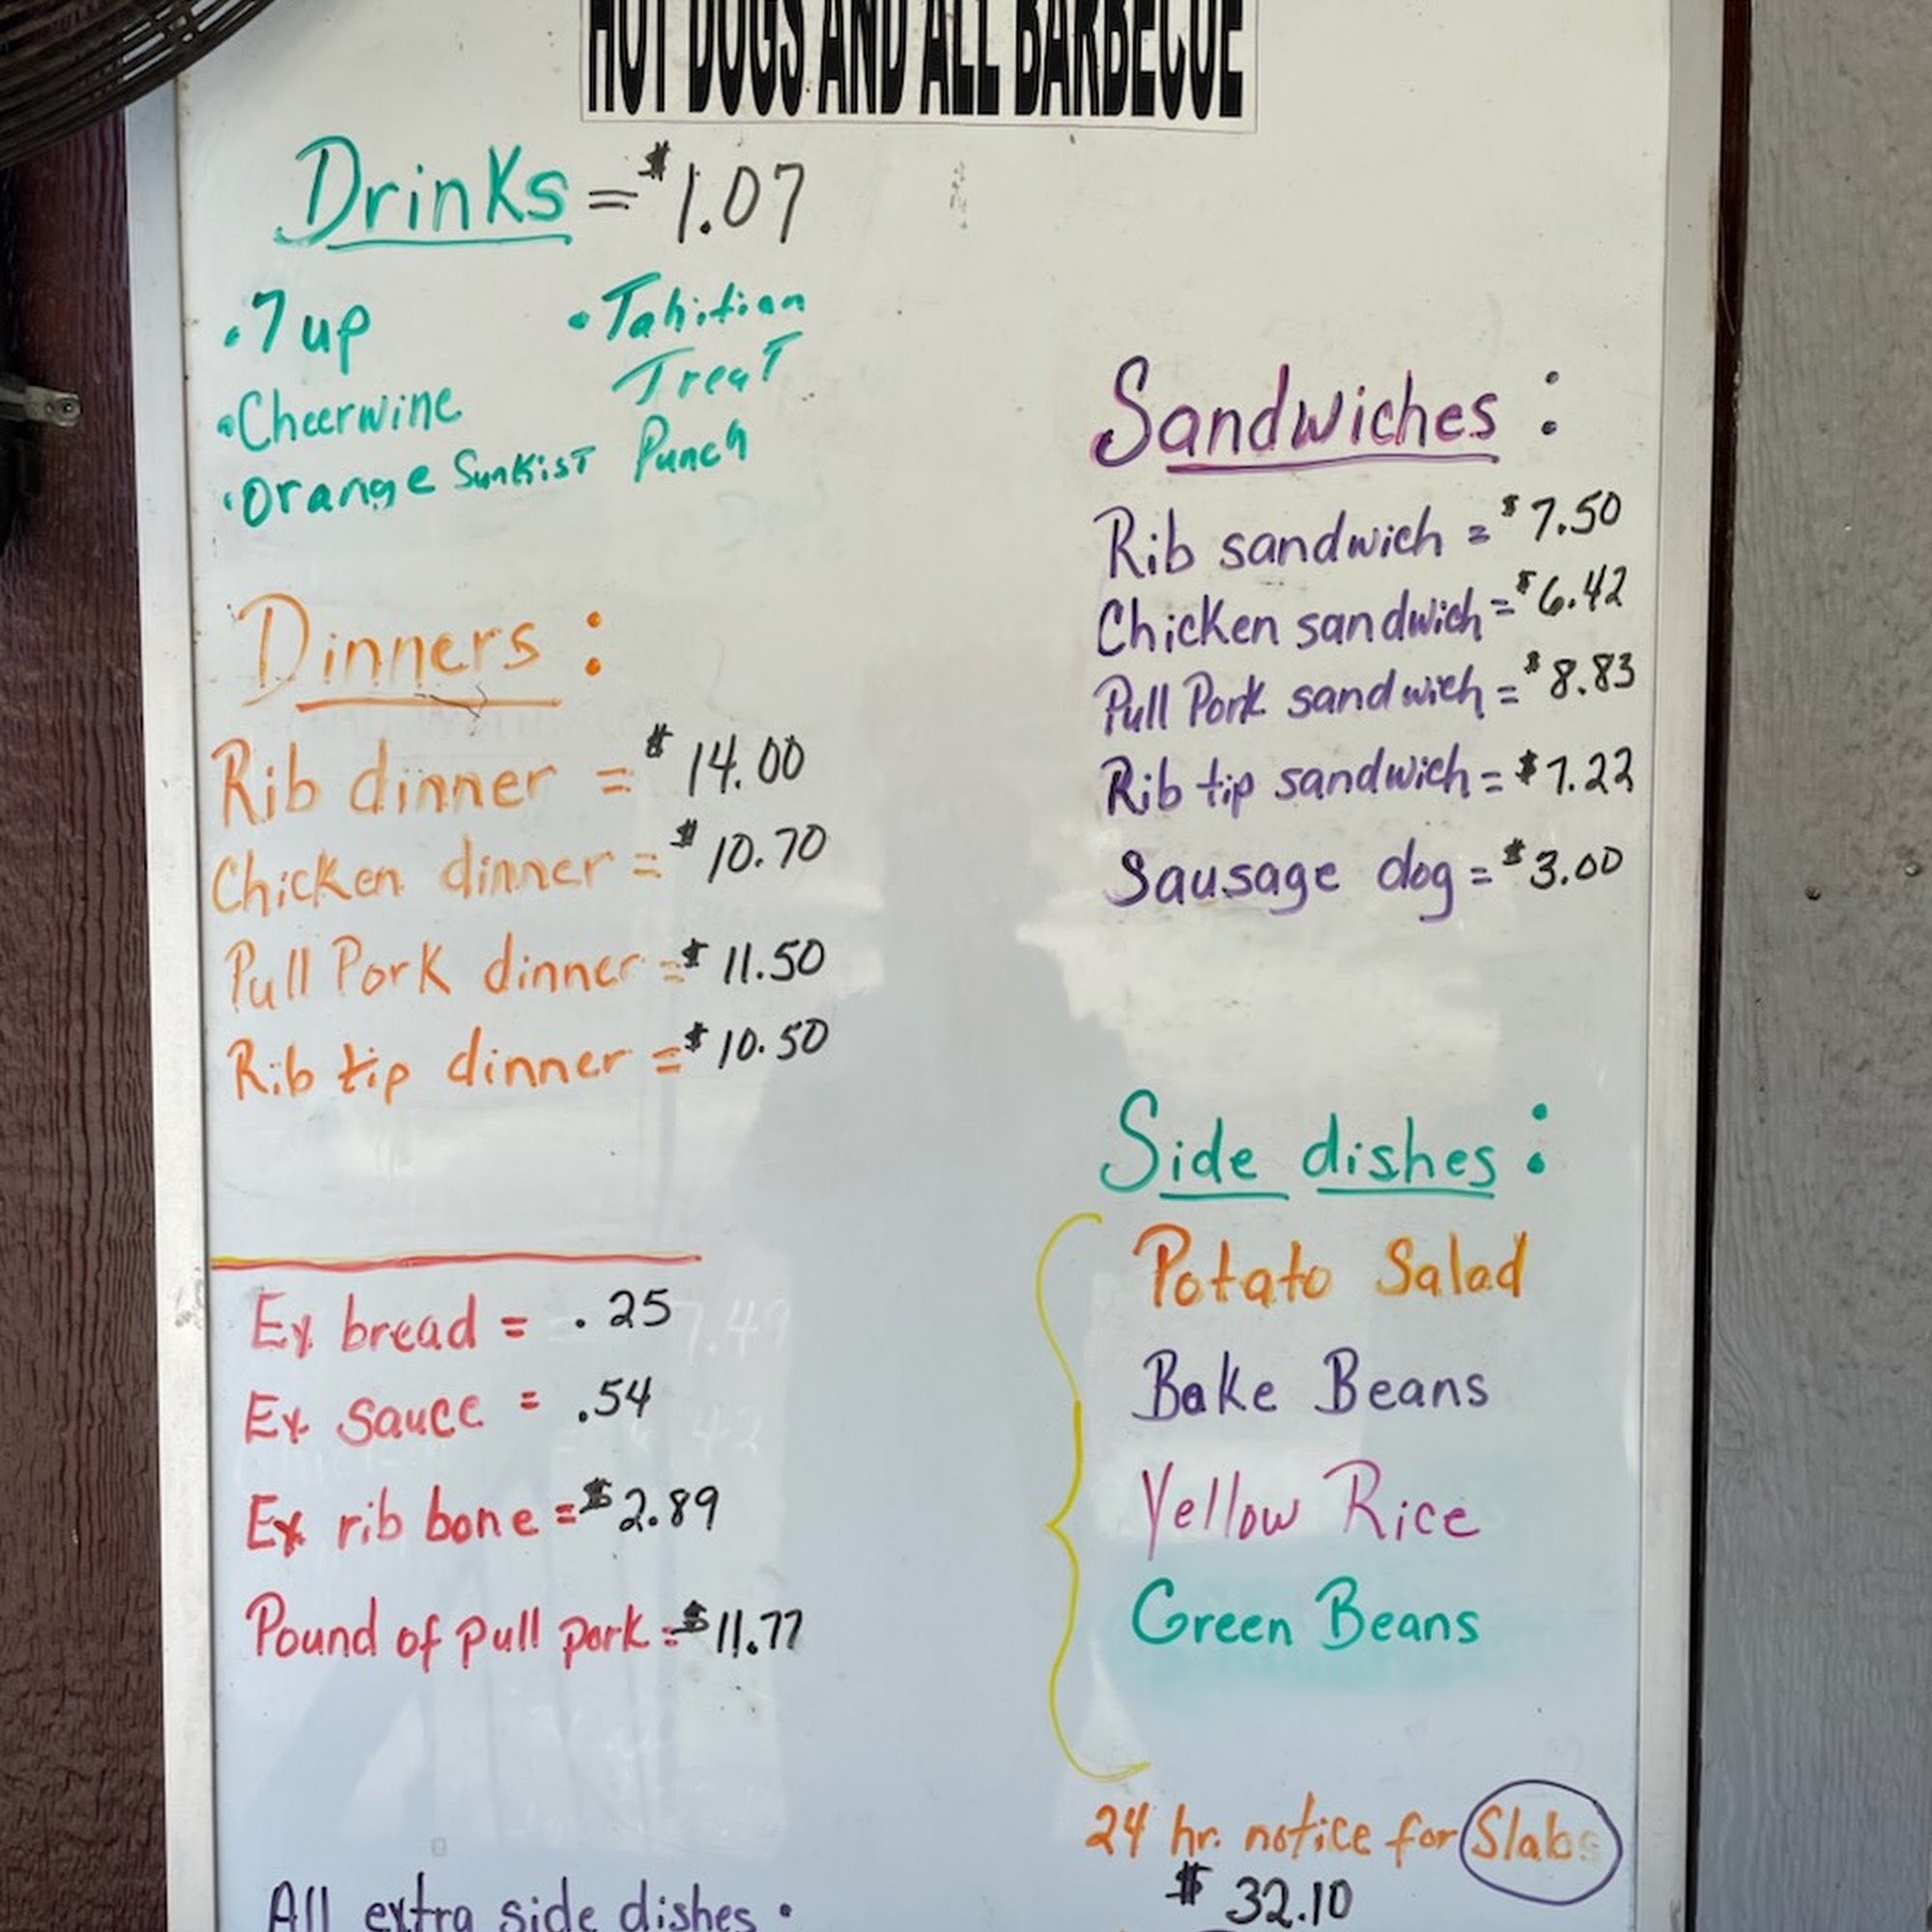 HOT DOGS AND ALL BARBECUE
Drinks = $1.07
• 7 up
• Cheerwine
• Orange Sunkist
• Tahitian
Treat
Punch
Dinners :
Rib dinner = $14.00
Chicken dinner = $10.70
Pull Pork dinner = $11.50
Rib tip dinner = $10.50
Ex bread = .25
Ex sauce = .54
Ex rib bone = $2.89
Pound of pull pork = $11.77
All extra side dishes •
Sandwiches :
Rib sandwich = $7.50
Chicken sandwich = $6.42
Pull Pork sandwich = $8.83
Rib tip sandwich = $7.22
Sausage dog = $3.00
Side dishes :
Potato Salad
Bake Beans
Yellow Rice
Green Beans
24 hr. notice for Slabs
$32.10